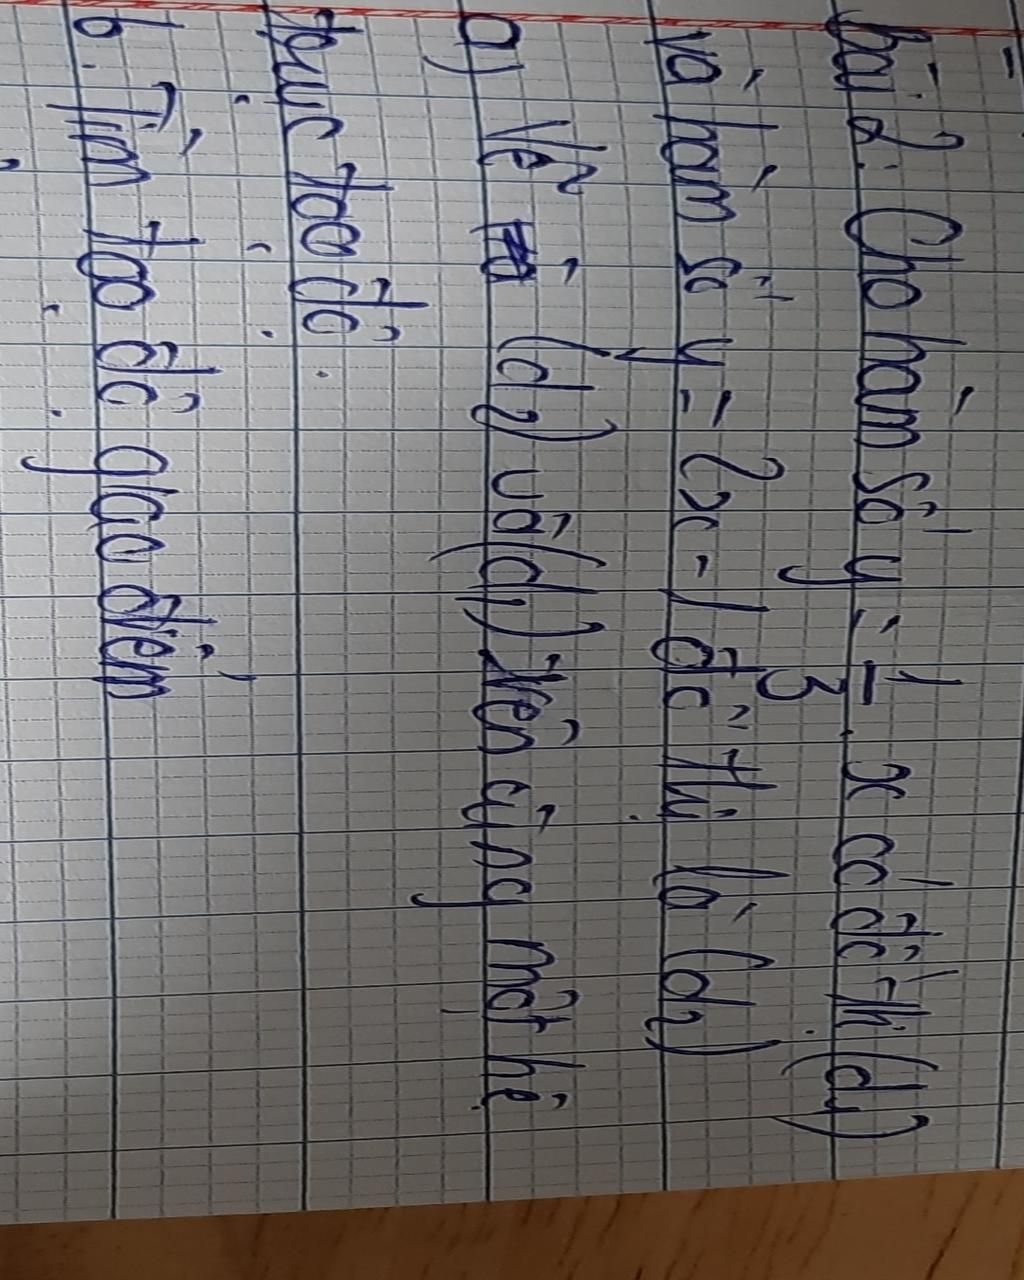 bài 2: Cho hàm số y = 1/3 . x có đồ thị (d1)
và hàm số y = 2x - 1 đồ thị là (d2)
a) Vẽ (d2) và (d1) trên cùng một hệ
trục toạ độ.
b. Tìm toạ độ giao điểm